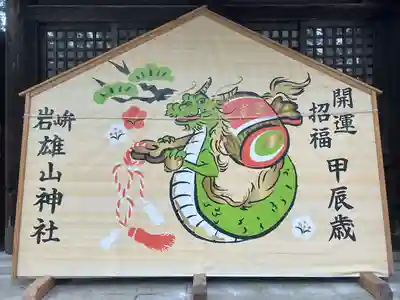 開運
招福
甲辰歳
岩﨑
雄山神社